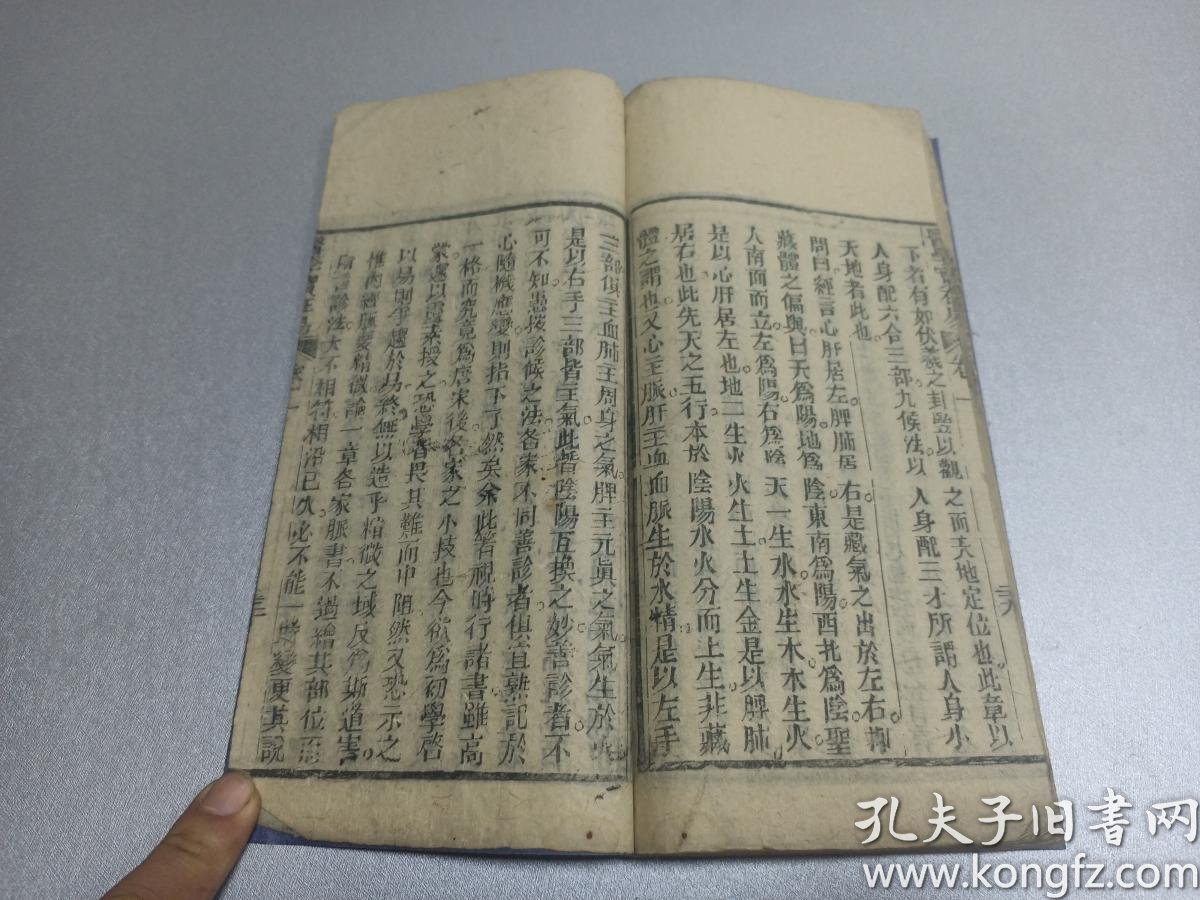 下者有如伏羲之卦豎以觀之而天地定位也此章以
人身配六合三部九候法以人身配三才所謂人身小
天地者此也
問曰經言心肝居左脾肺居右是藏氣之出於左右抑
藏體之偏與曰天爲陽地爲陰東南爲陽西北爲陰聖
人南面而立左爲陽右爲陰天一生水水生木木生火
是以心肝居左也地二生火火生土土生金是以脾肺
居右也此先天之五行本於陰陽水火分而上生非藏
體之謂也又心主脈肝主血血脈生於水精是以左手
三部俱主血肺主周身之氣脾主元眞之氣氣生於火
是以右手三部皆主氣此皆陰陽互換之妙善診者不
可不知愚按診候之法各家不同善診者俱宜熟記於
心隨機應變則指下了然矣余此書視時行諸書雖高
一格而究竟爲唐宋後各家之小技也今欲爲初學啓
蒙遽以靈素授之恐學者畏其難而中阻然又恐示之
以易則乎趨於易終無以造乎精微之域反爲斯道害
惟內經脈要精微論一章各家脈書不過繪其部位而
診法大不相符相沿已久必不能一時變更其說
三十
孔夫子旧书网
www.kongfz.com